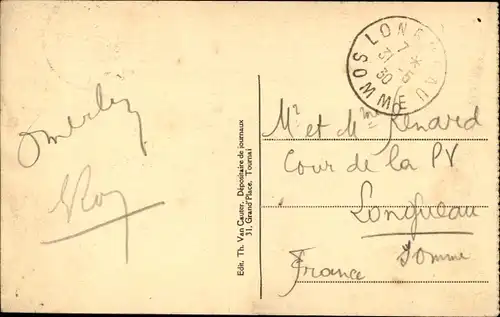 Roy
Edit. Th. Van Cauter, Dépositaire de journaux
31, Grand'Place, Tournai
LONGUEAU
SOMME
7
31-5
30
Mr et Mme Renard
Cour de la PV
Longueau
Somme
France